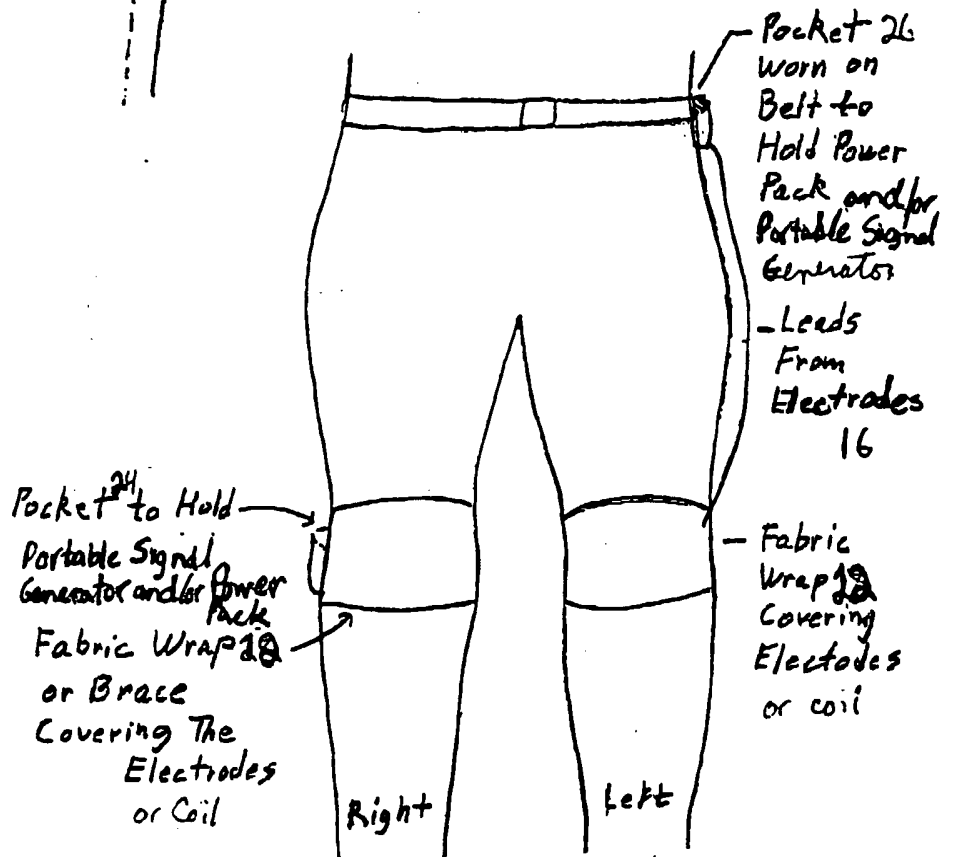 Pocket 26
Worn on
Belt to
Hold Power
Pack and/or
Portable Signal
Generator
Leads
From
Electrodes
16
Pocket 24 to Hold
Portable Signal
Generator and/or Power
Pack
Fabric Wrap
or Brace
Covering The
Electrodes
or Coil
Fabric
Wrap
Covering
Electodes
or coil
Right
Left